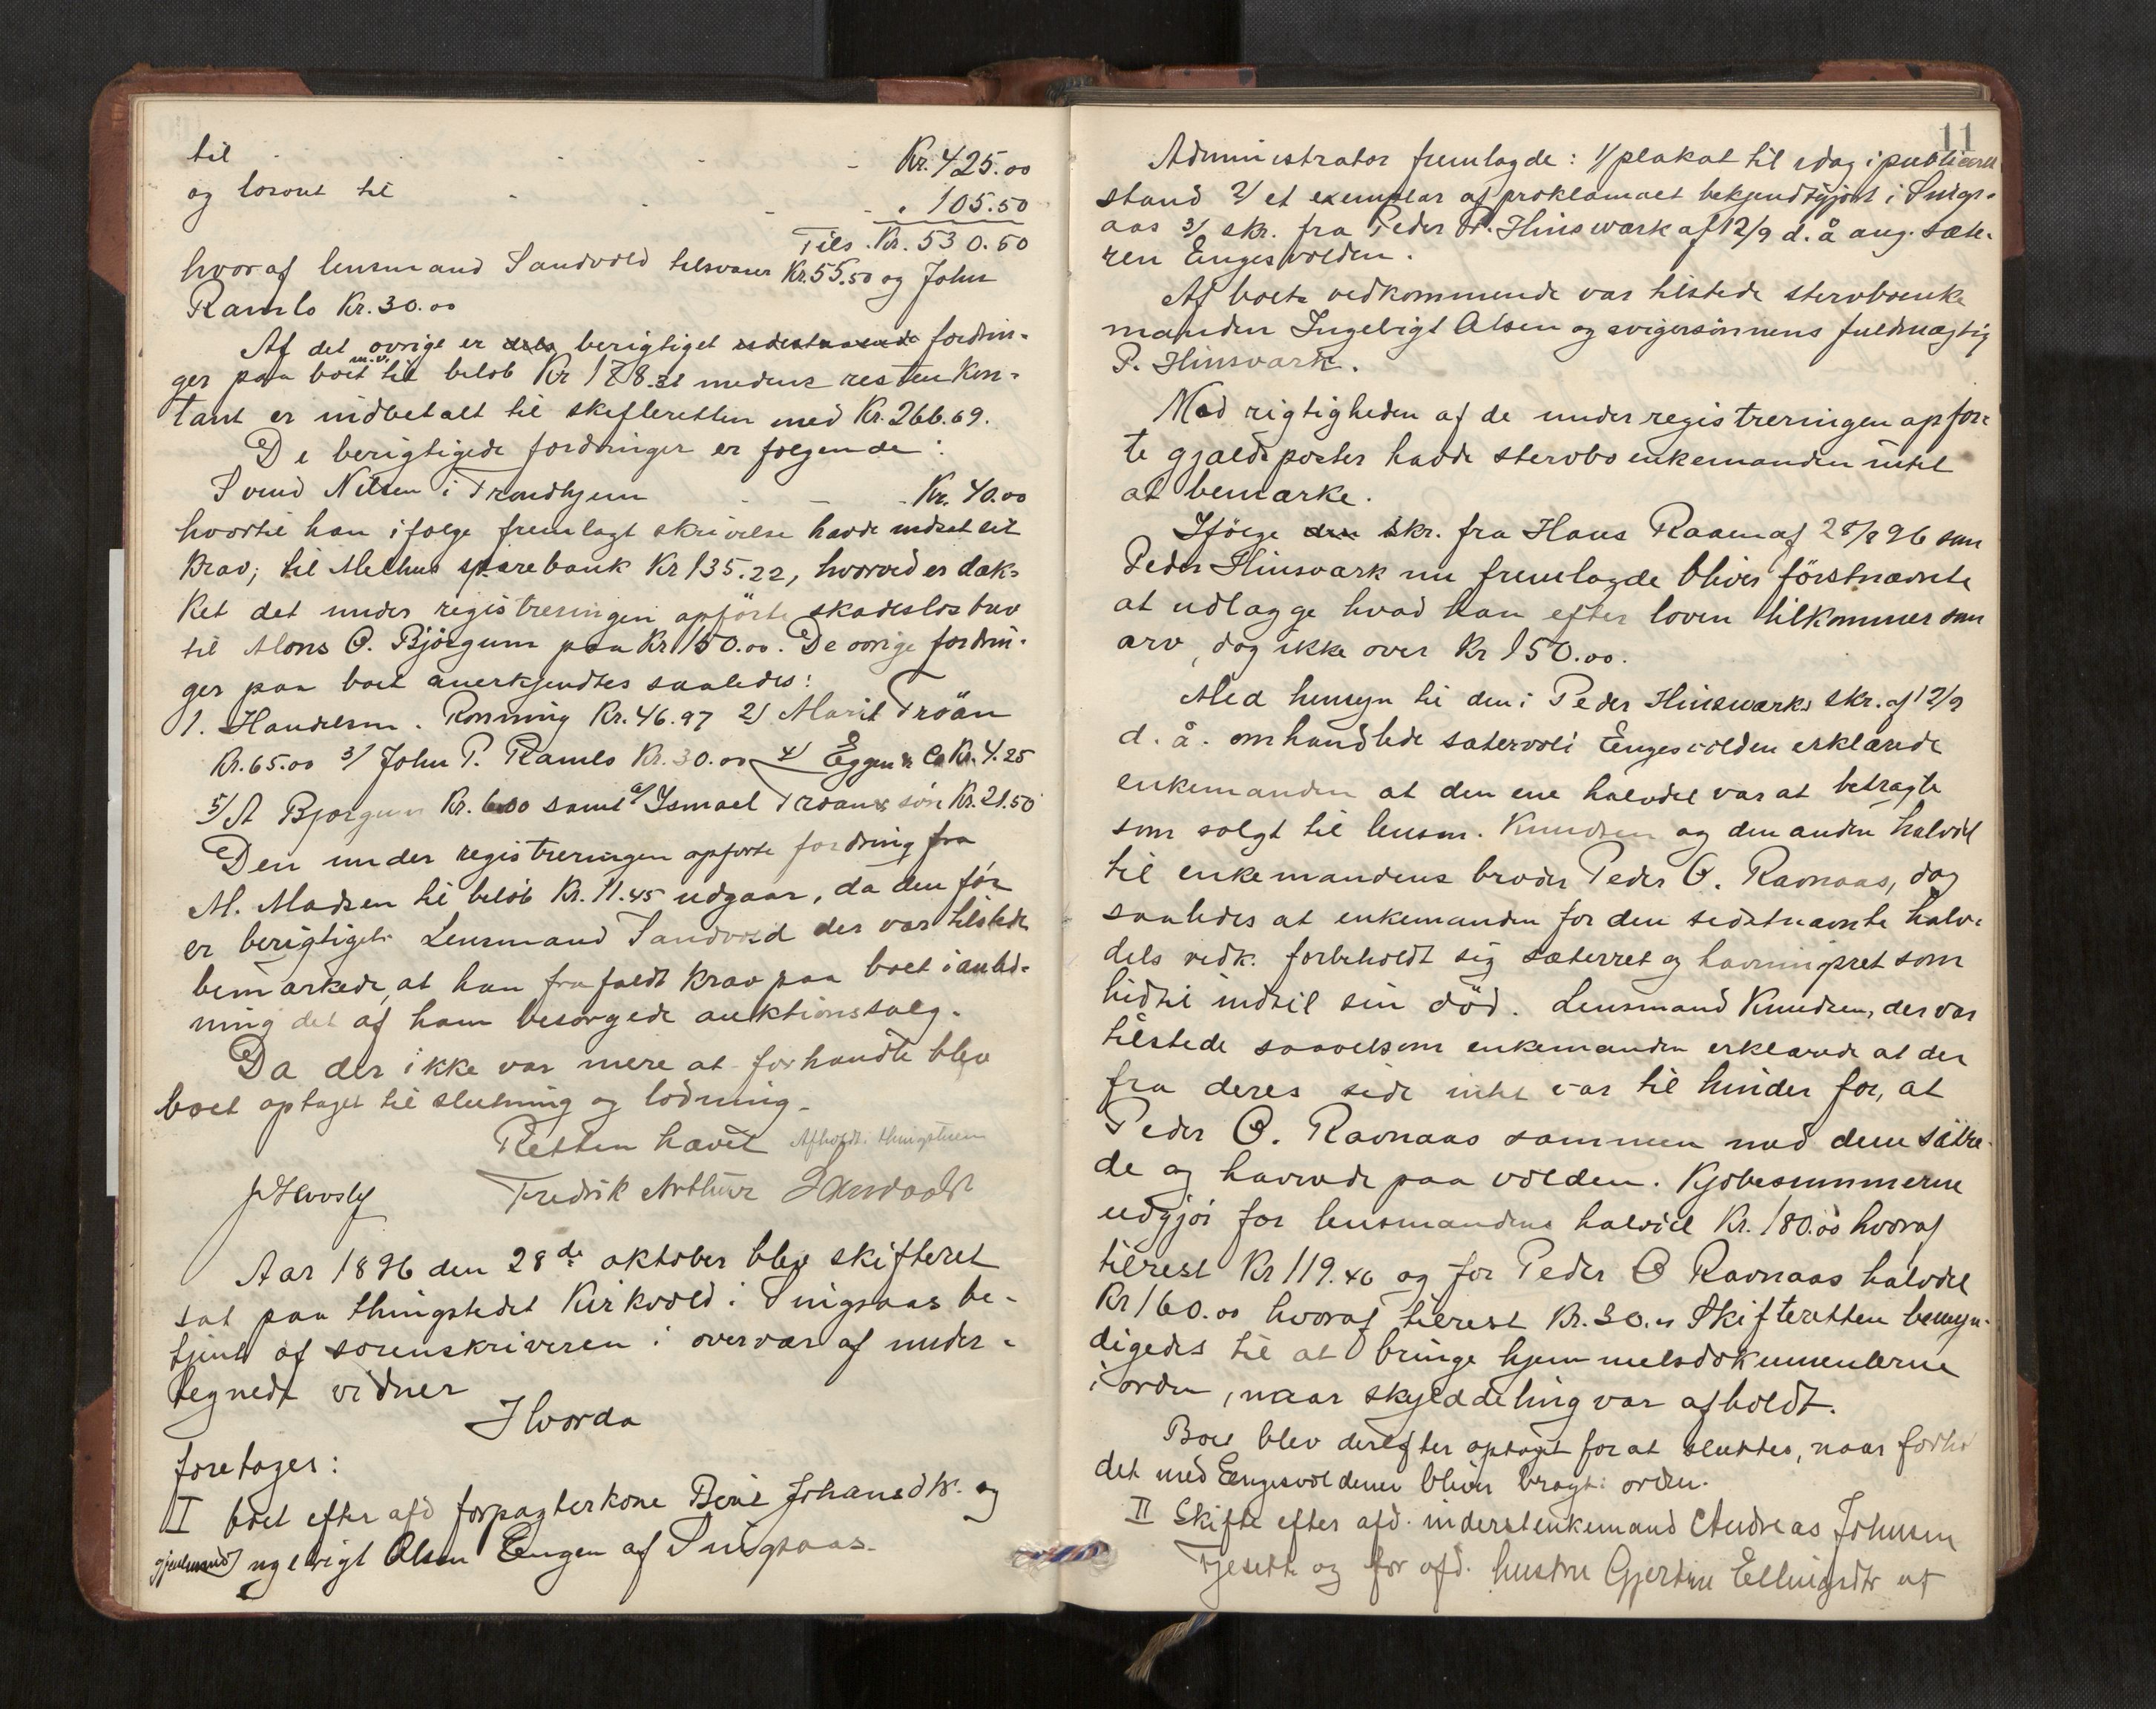 til - - - - - Kr. 425.00
og losont til - - - - " 105.50
Tils. Kr. 530.50
hvoraf lensmand Sandvold tilsvarer Kr. 55.50 og John
Ramlo Kr. 30.00
Af det øvrige er dels berigtiget udestaaende fordrin-
ger paa boet m.v. til beløb Kr 178.31 medens resten kon-
tant er indbetalt til skifteretten med Kr. 266.69.
De berigtigede fordringer er følgende:
Svend Nilsen i Trondhjem - - Kr. 40.00
hvortil han ifølge fremlagt skrivelse havde nedsat sit
krav; til Melhus sparebank Kr 135.22, hvorved er dæk-
ket det under registreringen opførte skadesløsbrev
til Mons O. Bjørgum paa Kr 150.00. De øvrige fordrin-
ger paa boet anerkjendtes saaledes:
1. Handelsm. Rønning Kr. 46.97 2) Marit Trøan
Kr. 65.00 3/ John P. Ramlo Kr. 30.00 4) Eggen & Co Kr. 4.25
5/ A Bjørgum Kr. 6.00 samt 6/ Ismael Trøans søn Kr. 21.50
Den under registreringen opførte fordring fra
M. Madsen til beløb Kr. 11.45 udgaar, da den før
er berigtiget. Lensmand Sandvold der var tilstede
bemærkede, at han frafaldt krav paa boet i anled-
ning det af ham besørgede auktionssalg.
Da der ikke var mere at forhandle blev
boet optaget til slutning og lodning.
Retten hævet Afholdt i thingstuen
Fredrik Arthur Sandvold
Aar 1896 den 28de oktober blev skifteret
sat paa thingstedet Kirkvold i Singsaas be-
tjent af sorenskriveren i overvær af under-
tegnede vidner
Hvorda
foretoges:
I boet efter afd forpagterkone Berit Johansdtr. og
gjenlevend Ingebrigt Olsen Engen af Singsaas.
11
Administrator fremlagde: 1/ plakat til idag i publiceret
stand 2/ et exemplar af proklamaet bekjendtgjort i Sings-
aas 3/ skr. fra Peder P. Hinsværk af 12/9 d. å ang. sæte-
ren Engesvolden.
Af boets vedkommende var tilstede stervboenke
manden Ingebrigt Olsen og svigersønnens fuldmægtig
P. Hinsværk.
Mod rigtigheden af de under registreringen opfør-
te gjældsposter havde stervboenkemanden intet
at bemærke.
Ifölge den skr. fra Hans Raaen af 28/8 96 som
Peder Hinsværk nu fremlagde bliver förstnævnte
at udlægge hvad han efter loven tilkommer som
arv, dog ikke over Kr 150.00.
Med hensyn til den i Peder Hinsværks skr. af 12/9
d. å. omhandlede sætervold Engesvolden erklærede
enkemanden at den ene halvdel var at betragte
som solgt til lensm. Knudsen og den anden halvdel
til enkemandens broder Peder O. Ravnaas, dog
saaledes at enkemanden for den sidstnævnte halv-
dels vedk. forbeholdt sig sæterret og havningsret som
hidtil indtil sin död. Lensmand Knudsen, der var
tilstede saavelsom enkemanden erklærede at der
fra deres side intet var til hinder for, at
Peder O. Ravnaas sammen med dem sætre-
de og havnede paa volden. Kjøbesummerne
udgjør for lensmandens halvdel Kr. 180.00 hvoraf
tilrest Kr 119.46 og for Peder O Ravnaas halvdel
Kr 160.00 hvoraf tilrest Kr. 30.00 Skifteretten bemyn-
digedes til at bringe hjemmelsdokumenterne
i orden, naar skylddeling var afholdt.
Boet blev derefter optaget for at sluttes, naar forhol
det med Engesvoldene bliver bragt i orden.
II Skifte efter afd. inderstenkemand Andreas Johnsen
Tjesett og før afd. hustru Gjertine Ellingsdtr af